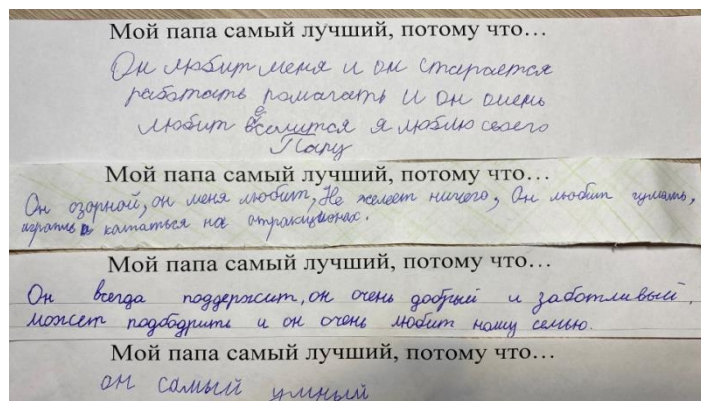 Мой папа самый лучший, потому что…
Он любит меня и он старается
работать помагать и он очень
любит веселится я люблю своего
Папу
Мой папа самый лучший, потому что…
Он озорной, он меня любит, Не жалеет ничего, Он любит гулять,
играть и кататься на отракционах.
Мой папа самый лучший, потому что…
Он всегда поддержит, он очень добрый и заботливый,
может подбодрить и он очень любит нашу семью.
Мой папа самый лучший, потому что…
он самый умный